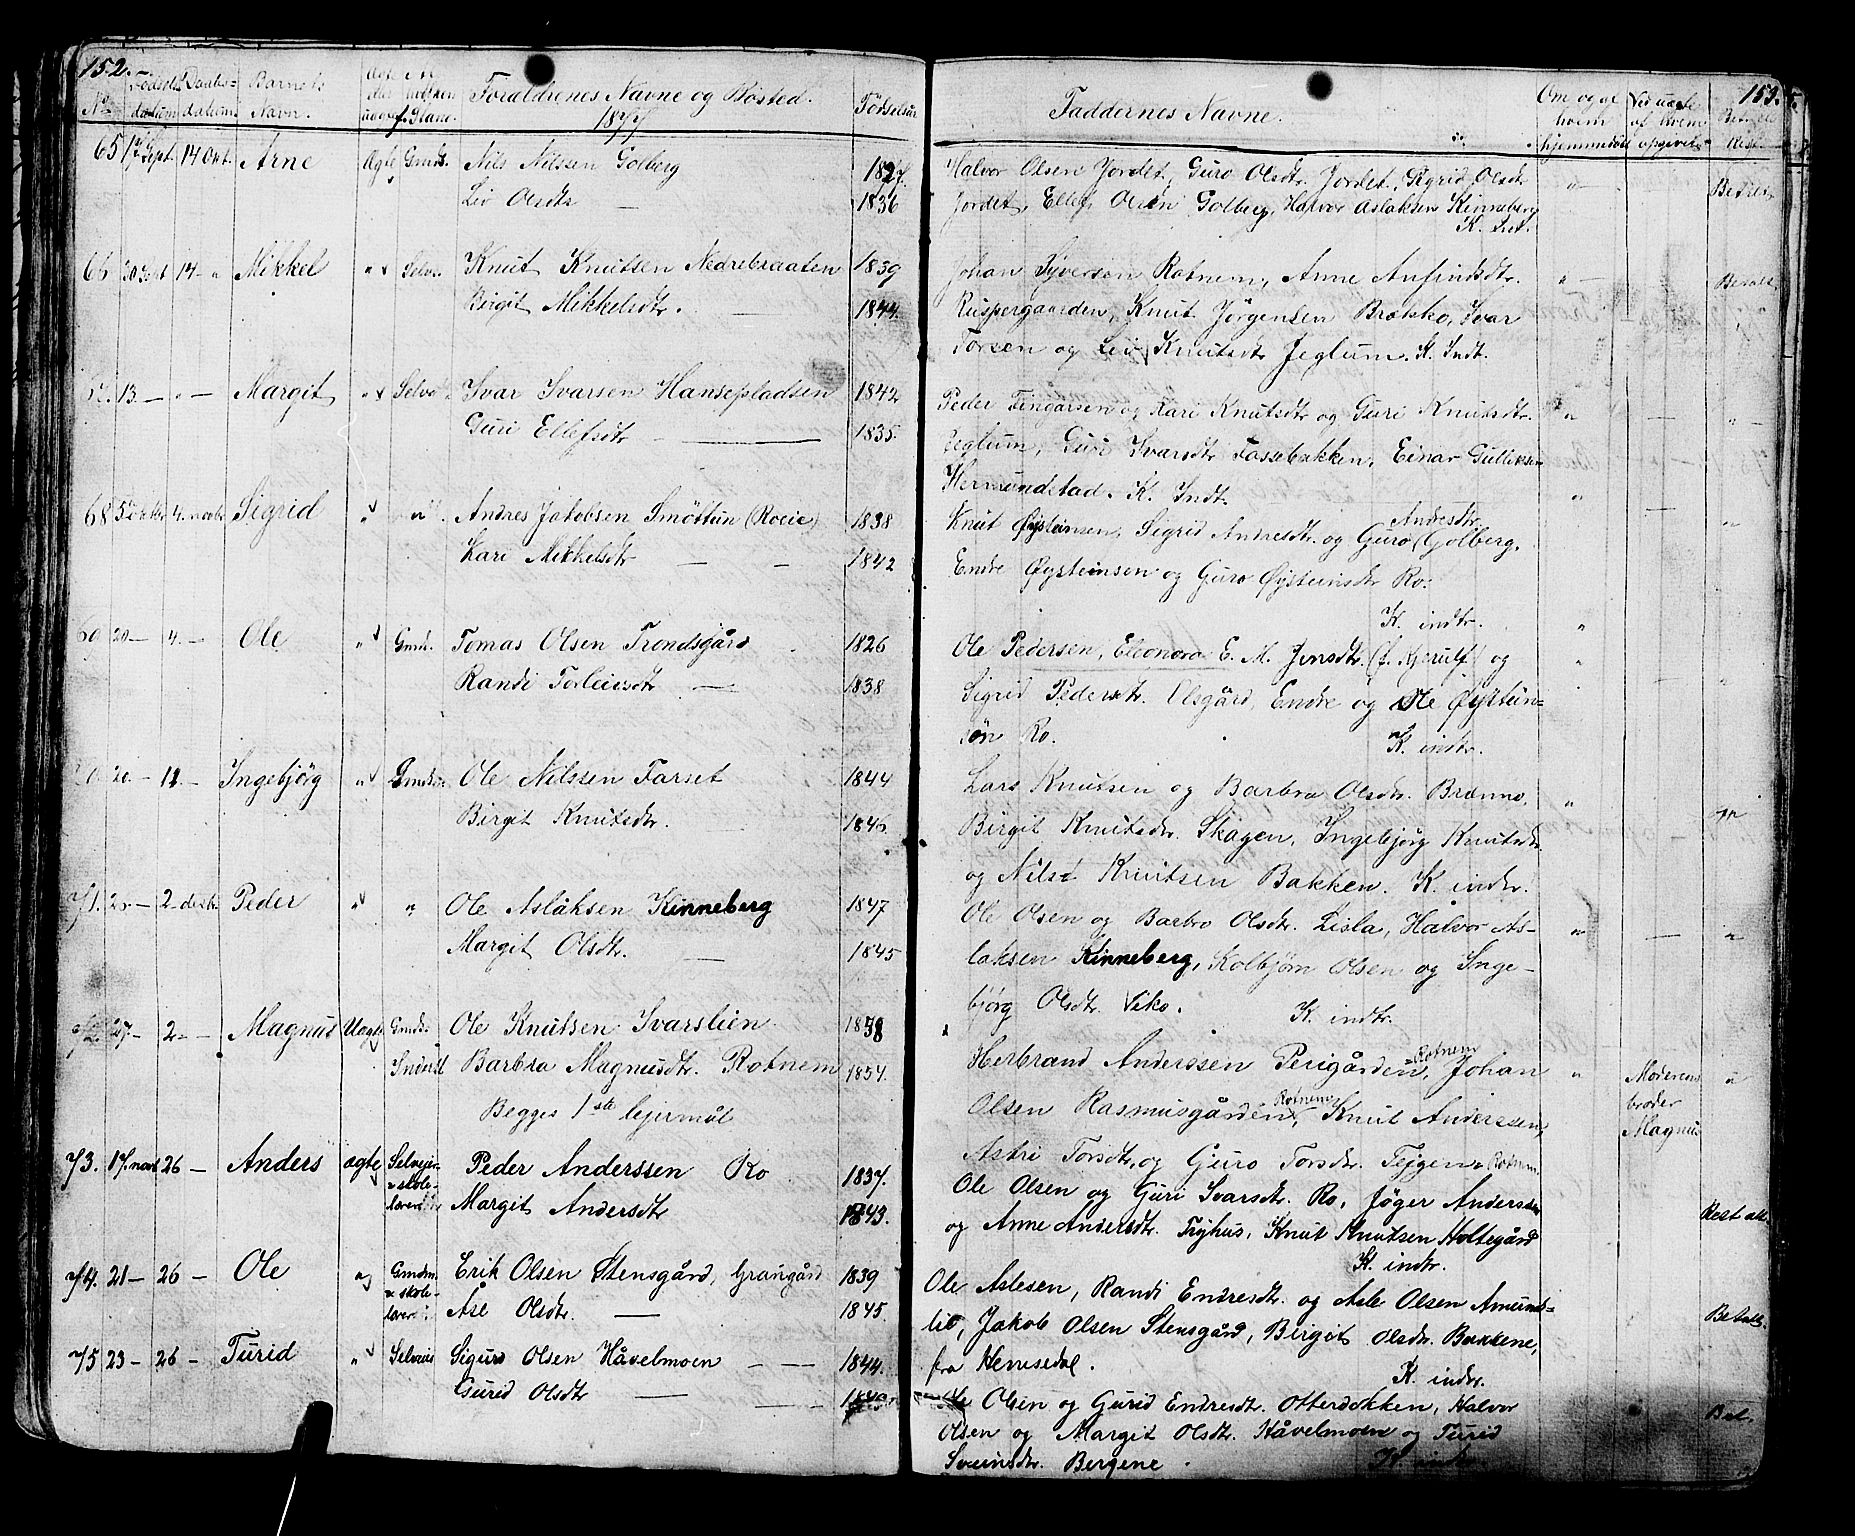 152.
No Fødsels datum Daabs-datum Barnets Navn. Ægte eller uægte f. Forældrenes Navne og Bosted. Fødselsaar
1877
65 Sept. 14 Okt. Arne Ægte Gmds. Nils Nilssen Golberg 1827.
Liv Olsdtr — 1836
66 30 Sept 14 - " Mikkel " Selve. Knut Knutsen Nedrebraaten 1839
Birgit Mikkelsdtr. — 1844.
13. — " — Margit " Selve Ivar Ivarsen Hansepladsen 1842
Guri Ellefsdtr — 1835.
68 5 oktbr 4. novbr Sigrid " " Andres Jakobsen Smøttun (Rocie) 1838
Kari Mikkelsdtr — — 1842
69 20 — 4. — Ole " Gmd. Tomas Olsen Trondsgård 1826
Randi Torleivsdtr — 1838
70 20 — 11 — Ingebjörg " Gmds. Ole Nilssen Farset 1844
Birgit Knutsdtr. — 1846.
71. 20 — 2 desbr Peder " " Ole Aslaksen Kinneberg 1847
Margit Olsdtr. — 1845
72. 27 — 2 — Magnus Uægte Gmds. Ole Knutsen Ivarslien 1858
Inderst Barbra Magnusdtr. Rotnem 1854.
Begges 1ste lejermål
73. 17. novb 26 — Anders ægte Selvejer Peder Anderssen Ro 1837.
& skole-
lærer Margit Andersdtr 1843.
74. 21 — 26 — Ole " Gmdm. Erik Olsen Stensgård, Grangård 1839
& skole-
lærer Åse Olsdtr. — 1845.
75 23 — 26 — Turid " Selveie Sigurd Olsen Håvelmoen — — 1844.
Gurid Olsdtr —
153.
Faddernes Navne. Om og af hvem hjemmedøbt Ved uægte af hvem opgivet
Halvor Olsen Jordet, Guro Olsdtr. Jordet, Sigrid Olsdtr " Betalt.
Jordet, Ellef Olsen Golberg, Halvor Aslaksen Kinneberg
K. Int.
Johan Syversen Rotnem, Anne Anfindsdtr. " Betalt
Ruspergaarden, Knut Jørgensen Brækko, Ivar
Torsen og Liv Knutsdtr Jeglum. K. Indt.
Peder Fingarsen og Kari Knutsdtr og Guri Knutsdtr. " — "
Jeglum, Guri Ivarsdtr Fossebakken, Einar Gulliksen
Hermundstad. K. Indt. "
Andresdtr.
Knut Øysteinsen, Sigrid Andresdtr. og Guro Golberg, — "
Endre Øysteinsen og Guro Øysteinsdtr Ro.
K. indtr. "
Ole Pedersen, Eleonora E. M. Jensdtr. (f. Kjerulf) og "
Sigrid Pedersdtr. Olsgård, Endre og Ole Øystein- — "
søn Ro. K. indtr.
Lars Knutsen og Barbra Olsdtr. Brænno, "
Birgit Knutsdtr. Skagen, Ingebjörg Knutsdtr —
og Nils Knutsen Bakken. K. indtr.
Ole Olsen og Barbro Olsdtr. Lisla, Halvor As- " — "
laksen Kinneberg, Kolbjørn Olsen og Inge-
bjørg Olsdtr Viko. K. indtr.
Rotnem
Herbrand Anderssen Perigården, Johan " Moderens "
Rotnem
Olsen Rasmusgården, Knut Anderssen, broder
Magnus
Astri Torsdtr, og Guro Torsdtr. Tejgen Rotnem.
Ole Olsen og Guri Ivarsdtr. Ro, Jøger Andersen
og Anne Andersdtr. Tryhus, Knut Knutsen Holtegård
K. indtr.
Ole Aslesen, Randi Endresdtr. og Asle Olsen Amunds-
lid, Jakob Olsen Stensgård, Birgit Olsdtr. Bakkene, Betalt.
fra Hemsedal. K. indtr.
Ole Olsen og Gurid Endresdtr. Otterdokken, Halvor Bet.
Olsen og Margit Olsdtr. Håvelmoen og Turid
Sveinsdtr. Bergene. K indtr